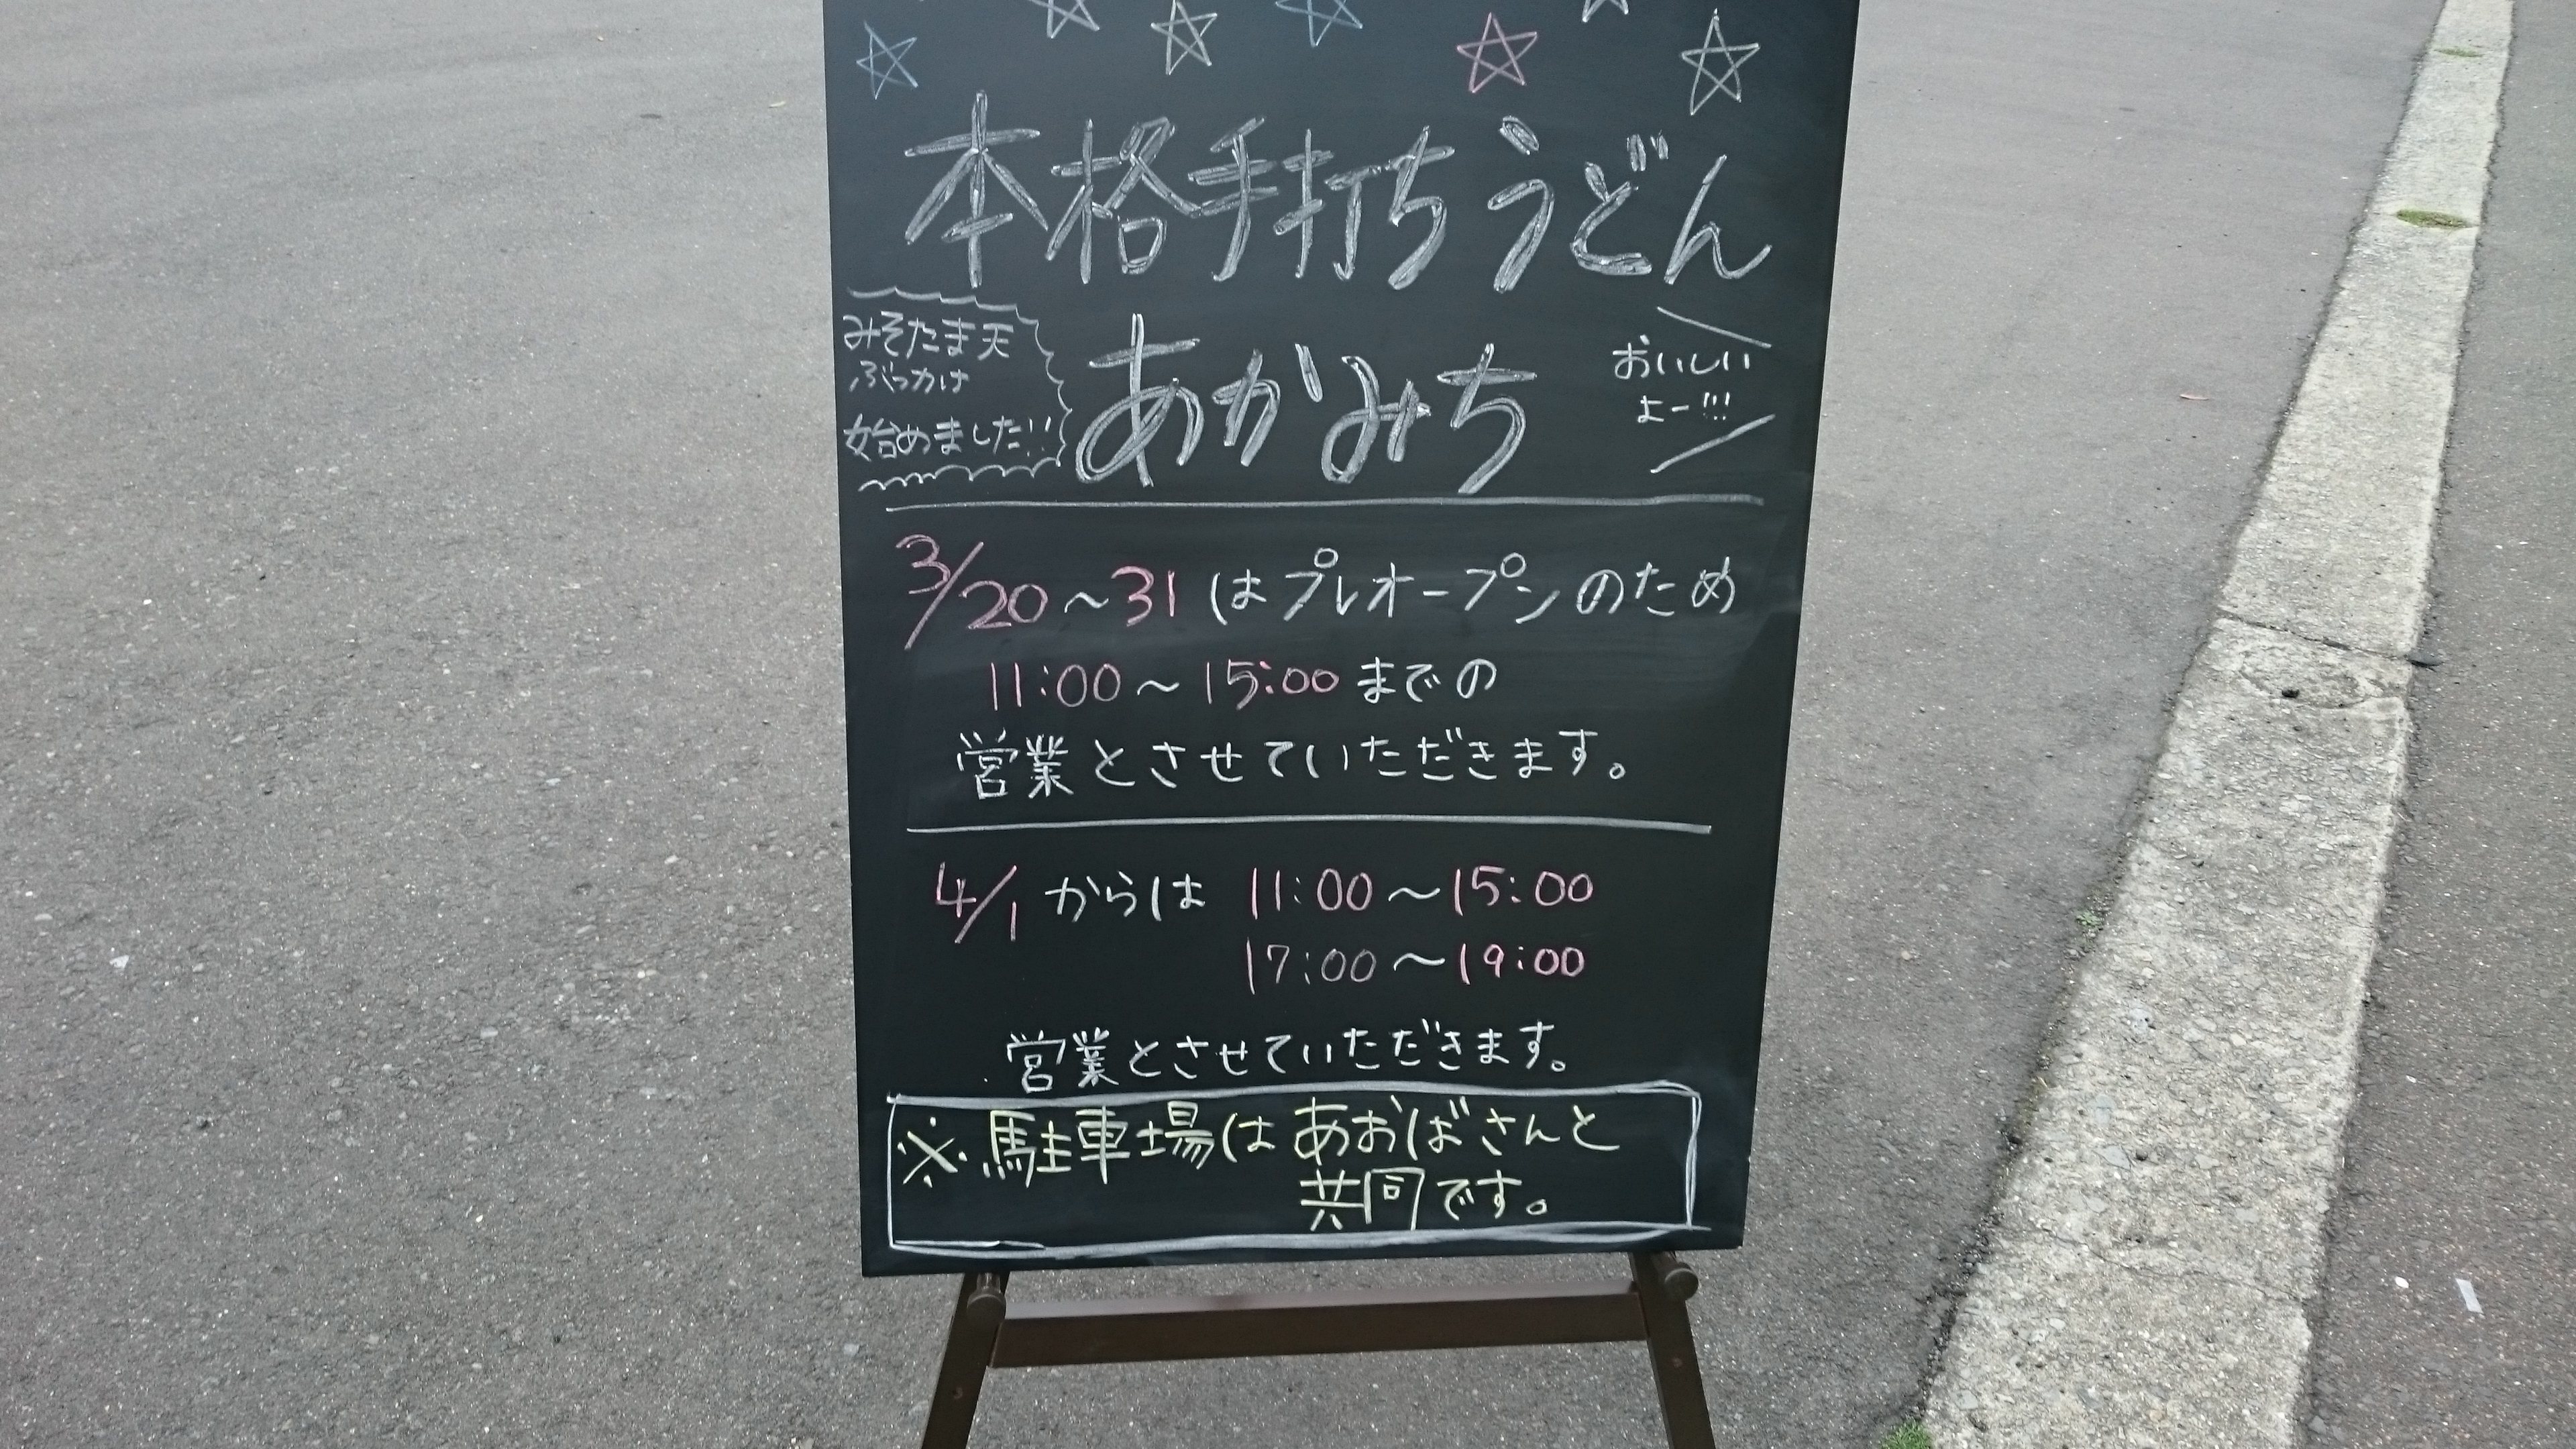 本格手打ちうどん
みそたま天
ぶっかけ
始めました!!
あかみち
おいしい
よー!!!
3/20～31はプレオープンのため
11:00～15:00までの
営業とさせていただきます。
4/1からは 11:00～15:00
17:00～19:00
営業とさせていただきます。
※駐車場はあおばさんと
共同です。